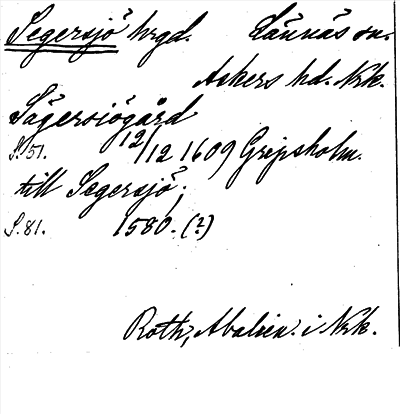 Segersjö hrgd. Lännäs sn.
Askers hd. Nrk.
Sägersiögård
S. 51. 12/12 1609 Gripsholm.
till Segersjö;
S. 81. 1580. (?)
Roth, Abalien. i Nrk.